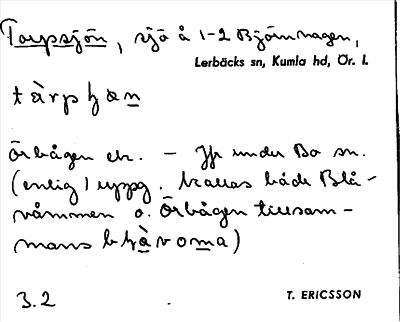 Torpsjön, sjö å 1-2 Björnhagen,
Lerbäcks sn, Kumla hd, Ör. l.
tàrpʃən
Örbågen etc. – Jfr under Bo sn.
(enlig 1 uppg. kallas både Blå-
våmmen o. Örbågen tillsam-
mans blåvoma)
3.2
T. ERICSSON